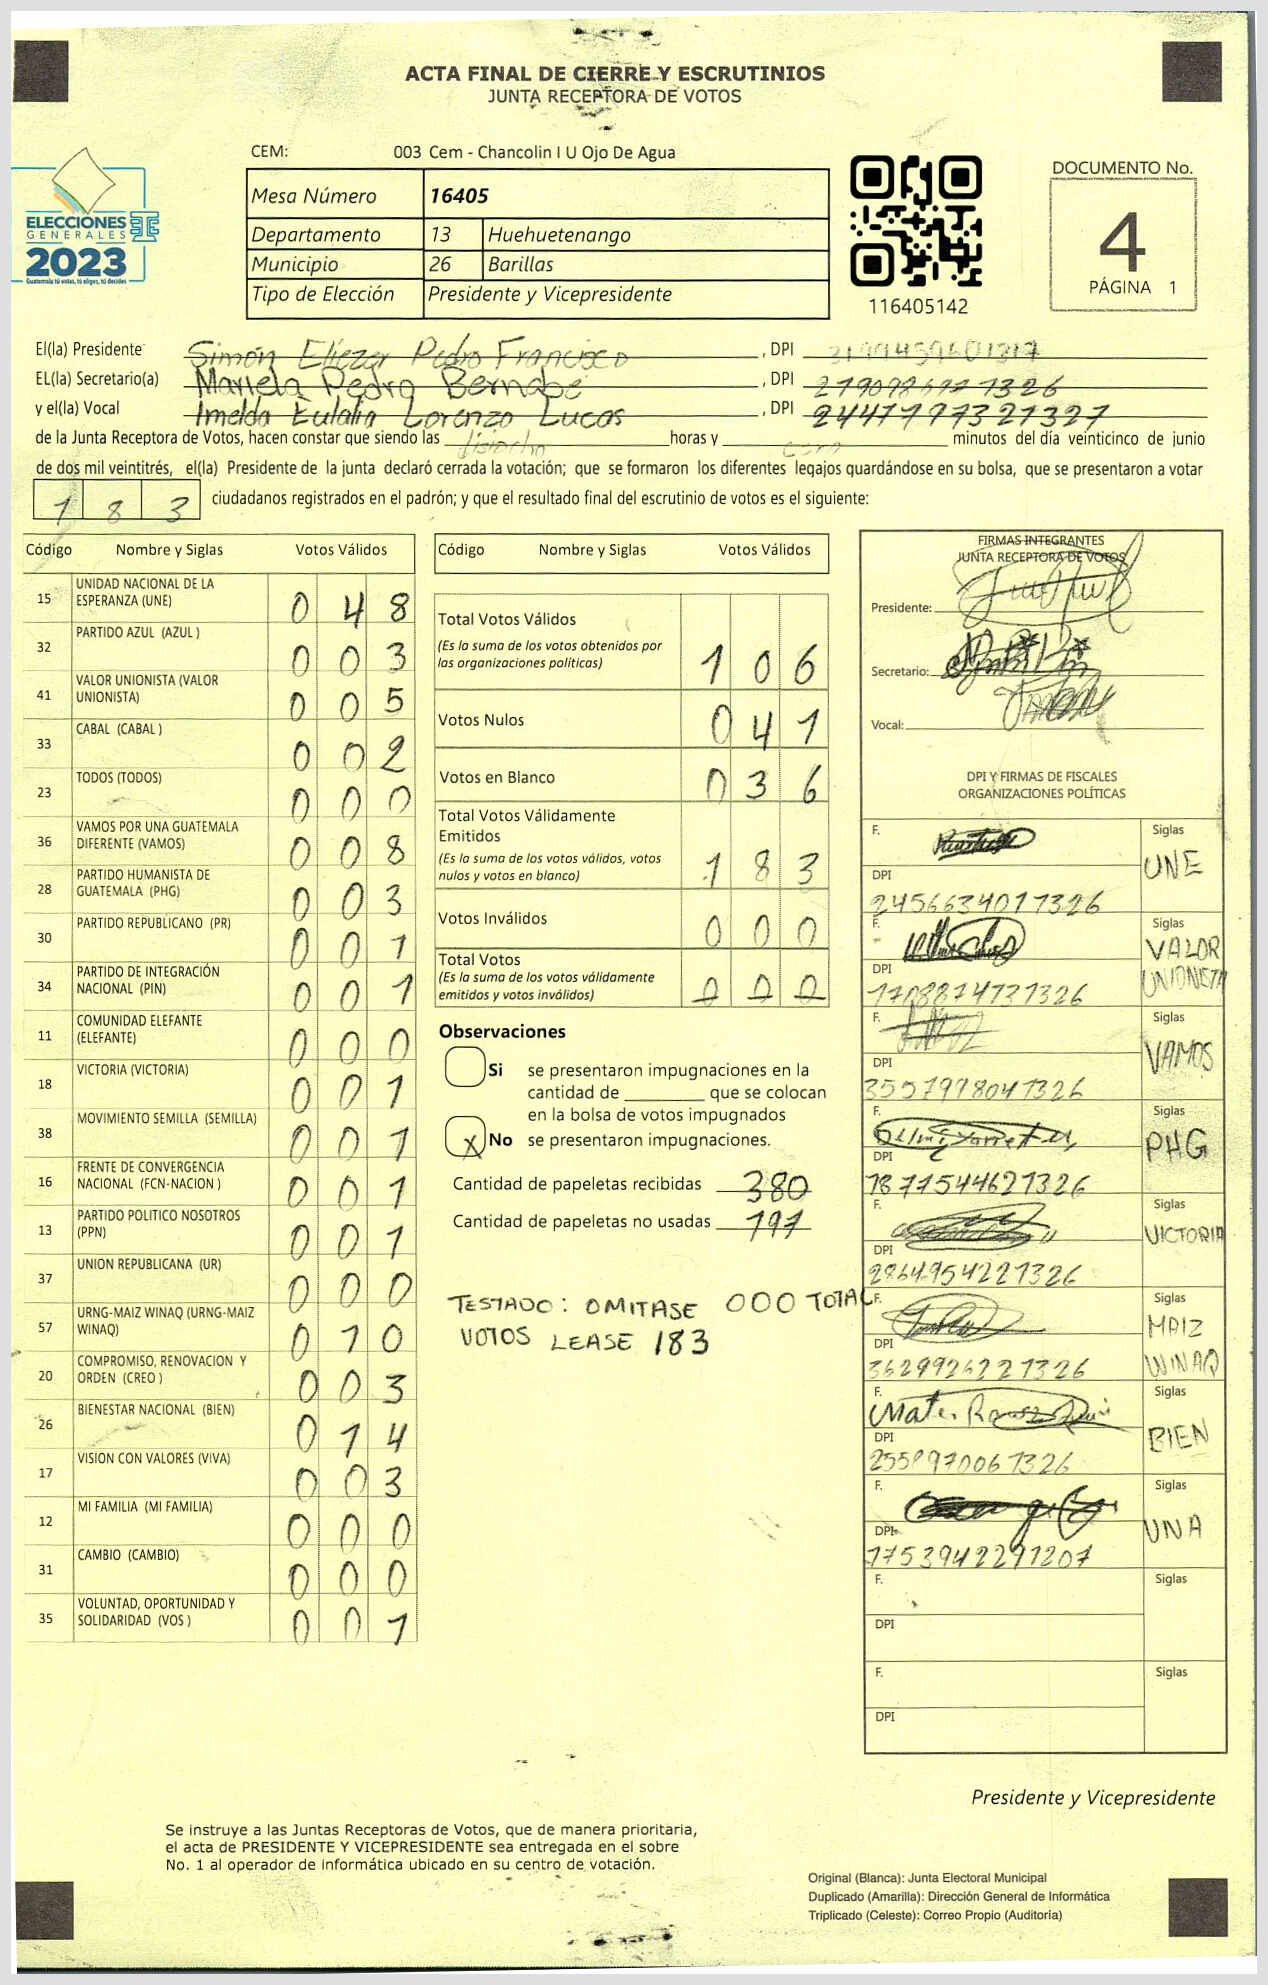 ACTA FINAL DE CIERRE Y ESCRUTINIOS
JUNTA RECEPTORA DE VOTOS
CEM: 003 Cem - Chancolin I U Ojo De Agua
Mesa Número 16405
Departamento 13 Huehuetenango
Municipio 26 Barillas
Tipo de Elección Presidente y Vicepresidente
ELECCIONES
GENERALES
2023
Guatemala tú votas, tú eliges, tú decides
116405142
DOCUMENTO No.
4
PÁGINA 1
El(la) Presidente Simón Eliezer Pedro Francisco , DPI
EL(la) Secretario(a) Mariela Pedro Bernabé , DPI
y el(la) Vocal Imelda Eulalia Lorenzo Lucas , DPI 2447777321327
de la Junta Receptora de Votos, hacen constar que siendo las disiocho horas y cero minutos del día veinticinco de junio
de dos mil veintitrés, el(la) Presidente de la junta declaró cerrada la votación; que se formaron los diferentes legajos guardándose en su bolsa, que se presentaron a votar
183 ciudadanos registrados en el padrón; y que el resultado final del escrutinio de votos es el siguiente:
Código Nombre y Siglas Votos Válidos
15 UNIDAD NACIONAL DE LA ESPERANZA (UNE) 0 4 8
32 PARTIDO AZUL (AZUL ) 0 0 3
41 VALOR UNIONISTA (VALOR UNIONISTA) 0 0 5
33 CABAL (CABAL ) 0 0 2
23 TODOS (TODOS) 0 0 0
36 VAMOS POR UNA GUATEMALA DIFERENTE (VAMOS) 0 0 8
28 PARTIDO HUMANISTA DE GUATEMALA (PHG) 0 0 3
30 PARTIDO REPUBLICANO (PR) 0 0 1
34 PARTIDO DE INTEGRACIÓN NACIONAL (PIN) 0 0 1
11 COMUNIDAD ELEFANTE (ELEFANTE) 0 0 0
18 VICTORIA (VICTORIA) 0 0 1
38 MOVIMIENTO SEMILLA (SEMILLA) 0 0 1
16 FRENTE DE CONVERGENCIA NACIONAL (FCN-NACION ) 0 0 1
13 PARTIDO POLITICO NOSOTROS (PPN) 0 0 1
37 UNION REPUBLICANA (UR) 0 0 0
57 URNG-MAIZ WINAQ (URNG-MAIZ WINAQ) 0 1 0
20 COMPROMISO, RENOVACION Y ORDEN (CREO ) 0 0 3
26 BIENESTAR NACIONAL (BIEN) 0 1 4
17 VISION CON VALORES (VIVA) 0 0 3
12 MI FAMILIA (MI FAMILIA) 0 0 0
31 CAMBIO (CAMBIO) 0 0 0
35 VOLUNTAD, OPORTUNIDAD Y SOLIDARIDAD (VOS ) 0 0 1
Código Nombre y Siglas Votos Válidos
Total Votos Válidos
(Es la suma de los votos obtenidos por
las organizaciones políticas) 1 0 6
Votos Nulos 0 4 1
Votos en Blanco 0 3 6
Total Votos Válidamente
Emitidos
(Es la suma de los votos válidos, votos
nulos y votos en blanco) 1 8 3
Votos Inválidos 0 0 0
Total Votos
(Es la suma de los votos válidamente
emitidos y votos inválidos) 0 0 0
Observaciones
Si se presentaron impugnaciones en la
cantidad de ________ que se colocan
en la bolsa de votos impugnados
X No se presentaron impugnaciones.
Cantidad de papeletas recibidas 380
Cantidad de papeletas no usadas 197
TESTADO: OMITASE 000 TOTAL
VOTOS LEASE 183
FIRMAS INTEGRANTES
JUNTA RECEPTORA DE VOTOS
Presidente:
Secretario:
Vocal:
DPI Y FIRMAS DE FISCALES
ORGANIZACIONES POLÍTICAS
F. Siglas
UNE
DPI
2456634011326
F. Siglas
VALOR
UNIONISTA
DPI
1708874731326
F. Siglas
VAMOS
DPI
3557998041326
F. Siglas
PHG
DPI
1877544621326
F. Siglas
VICTORIA
DPI
2864954221326
F. Siglas
MAIZ
WINAQ
DPI
3629926221326
F. Siglas
BIEN
DPI
2558970061326
F. Siglas
UNA
DPI
1753942291207
F. Siglas
DPI
F. Siglas
DPI
Presidente y Vicepresidente
Se instruye a las Juntas Receptoras de Votos, que de manera prioritaria,
el acta de PRESIDENTE Y VICEPRESIDENTE sea entregada en el sobre
No. 1 al operador de informática ubicado en su centro de votación.
Original (Blanca): Junta Electoral Municipal
Duplicado (Amarilla): Dirección General de Informática
Triplicado (Celeste): Correo Propio (Auditoría)